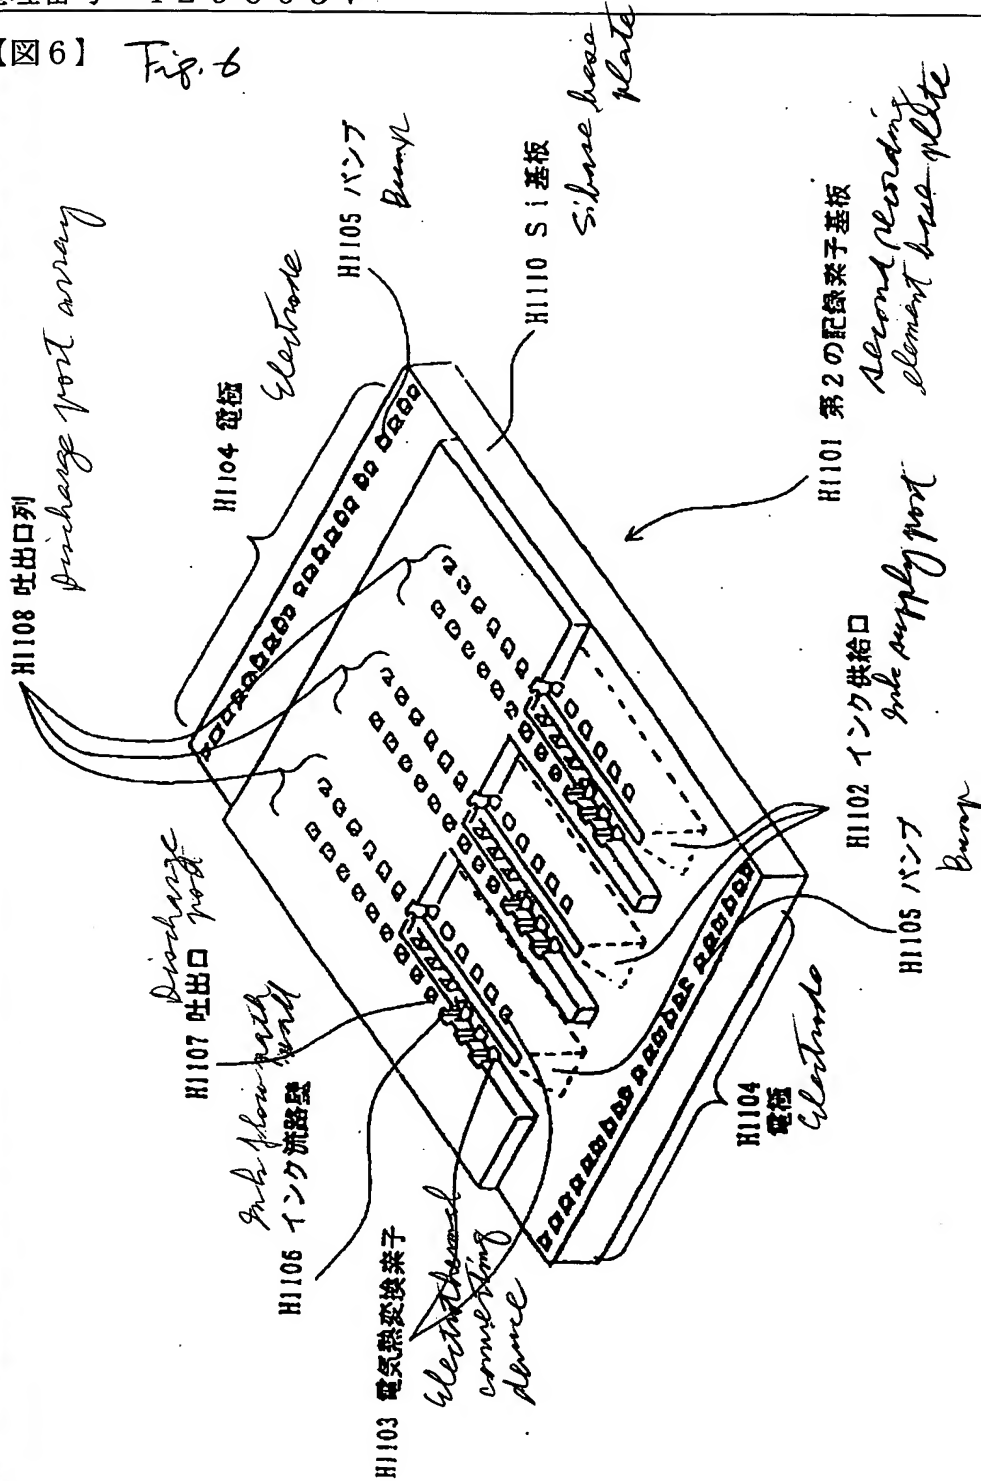 【図6】
Fig. 6
H1108 吐出口列
Discharge port array
H1104 電極
Electrode
H1105 バンプ
Bump
H1110 Si基板
Si base base
plate
H1101 第2の記録素子基板
second recording
element base plate
H1102 インク供給口
Ink supply port
H1105 バンプ
Bump
H1104
電極
Electrode
H1107 吐出口
Discharge
port
H1106 インク流路壁
Ink flow path
wall
H1103 電気熱変換素子
Electrothermal
converting
device